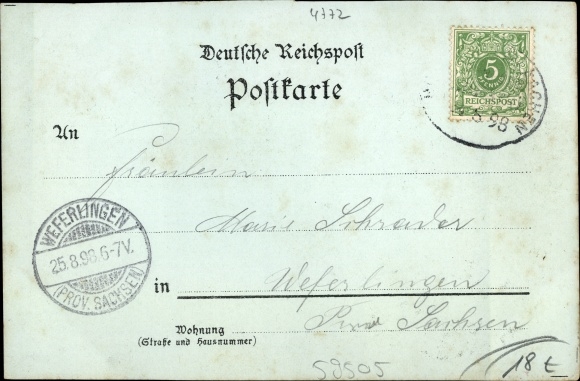 4772
Deutsche Reichspost
Postkarte
5
PFENNIG
REICHSPOST
98
An
Fräulein
Marie Schrader
in Weferlingen
Prov. Sachsen
WEFERLINGEN
25.8.98.6-7V.
(PROV. SACHSEN)
Wohnung
(Straße und Hausnummer)
59505
18 €